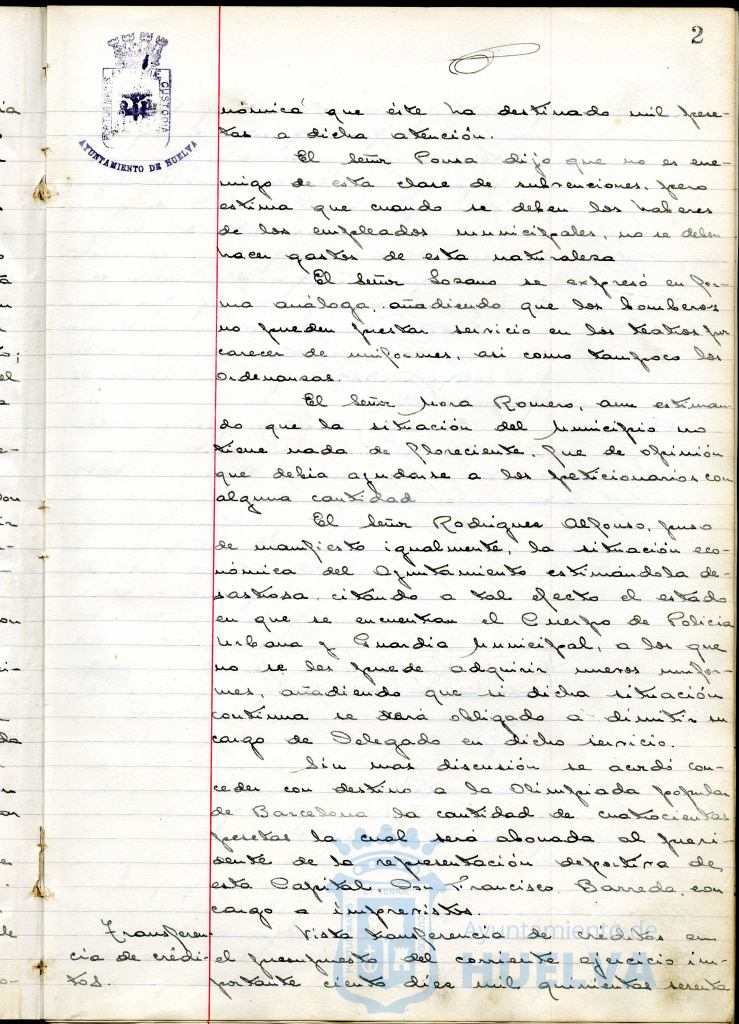 2
PORTUS MARIS
CUSTODIA
AYUNTAMIENTO DE HUELVA
nómica que éste ha destinado mil pese-
tas a dicha atención.
El Señor Ponsa dijo que no es ene-
migo de esta clase de subvenciones, pero
estima que cuando se deben los haberes
de los empleados municipales, no se deben
hacer gastos de esta naturaleza
El Señor Lozano se expresó en for-
ma análoga, añadiendo que los bomberos
no pueden prestar servicio en los teatros por
carecer de uniformes, asi como tampoco los
ordenanzas.
El Señor Mora Romero, aun estiman-
do que la situación del Municipio no
tiene nada de floreciente, fue de opinión
que debia ayudarse a los peticionarios con
alguna cantidad
El Señor Rodriguez Alfonso, puso
de manifiesto igualmente, la situación eco-
nómica del Ayuntamiento estimándola de-
sastrosa, citando a tal efecto el estado
en que se encuentran el Cuerpo de Policia
Urbana y Guardia Municipal, a los que
no se les puede adquirir nuevos unifor-
mes, añadiendo que si dicha situación
continua se verá obligado a dimitir su
cargo de Delegado en dicho servicio.
Sin mas discusión se acordó con-
ceder con destino a la Olimpiada popular
de Barcelona la cantidad de cuatrocientas
pesetas la cual será abonada al presi-
dente de la representación deportiva de
esta Capital, Don Francisco Barreda, con
cargo a imprevistos.
Transferen-
cia de crédi-
tos.
Vista transferencia de creditos en
el presupuesto del corriente ejercicio im-
portante ciento diez mil quinientas sesenta
Ayuntamiento de
HUELVA